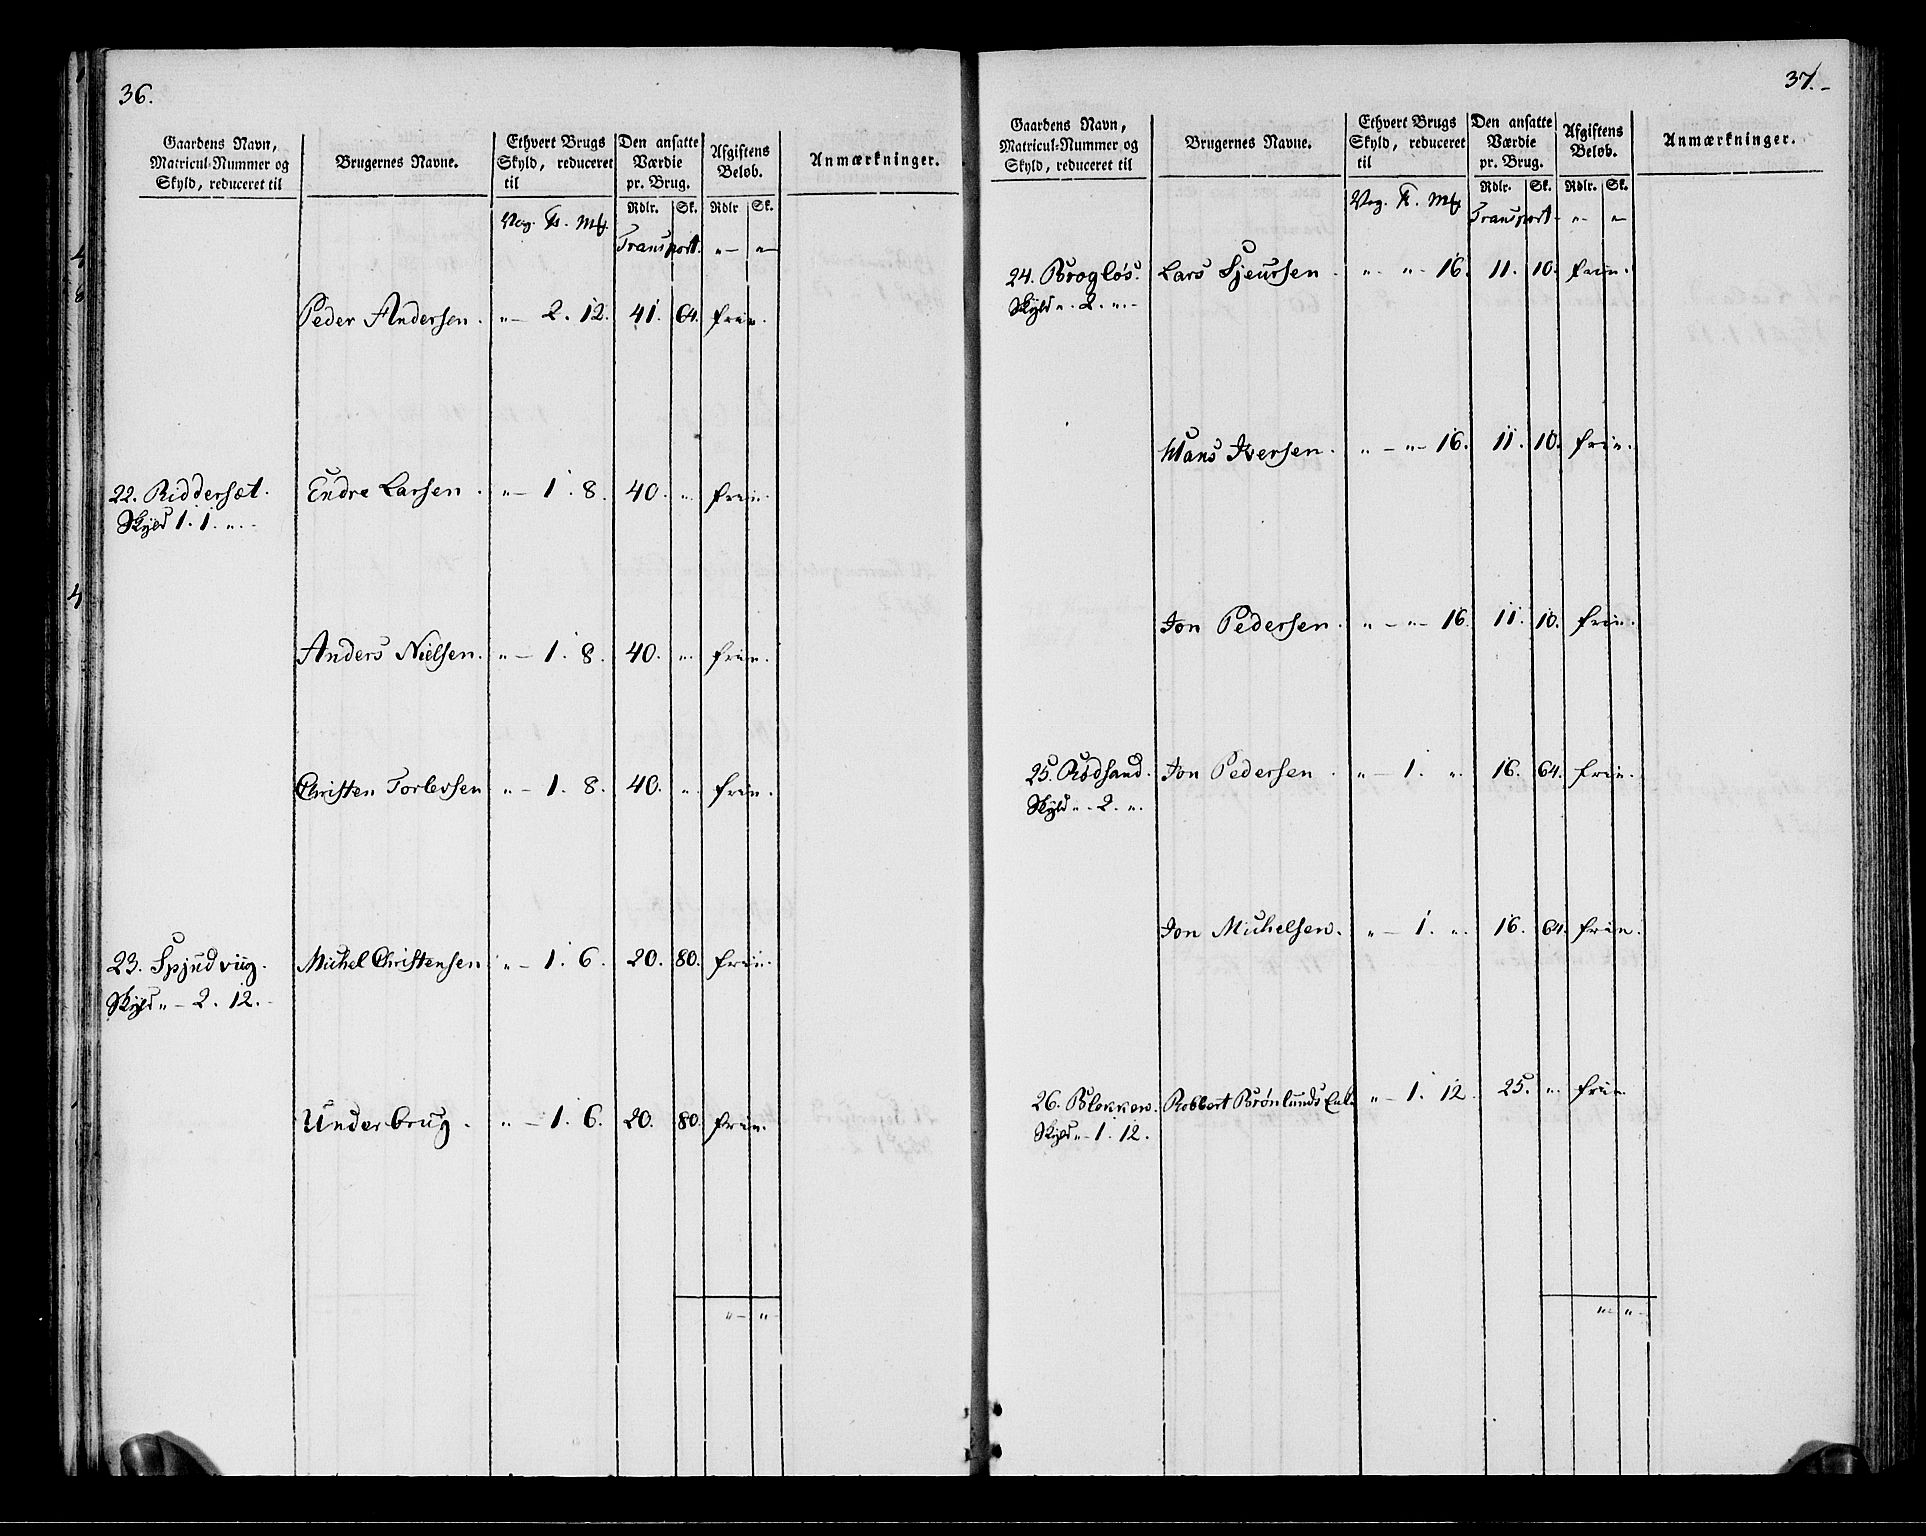 36.
Gaardens Navn, Matricul-Nummer og Skyld, reduceret til | Brugernes Navne. | Ethvert Brugs Skyld, reduceret til | Den ansatte Værdie pr. Brug. | Afgiftens Beløb. | Anmærkninger.
Vog. F. Mk. | Rdlr. | Sk. | Rdlr | Sk.
Transport. „ — „ —
Peder Andersen. „ — 2. 12. 41. 64. frie.
22. Riddersæt. Endre Larsen. „ — 1. 8. 40. „ frie.
Skyld 1. 1. „. -
Anders Nielsen. „ — 1. 8. 40. „. frie.
Christen Torlevsen „ — 1. 8. 40. „. frie.
23. Spjudviig. Michel Christensen „ — 1. 6. 20. 80. frie.
Skyld „ — 2. 12. -
Underbrug. „ — 1. 6. 20. 80. frie.
„ — „ —
37. -
Gaardens Navn, Matricul-Nummer og Skyld, reduceret til | Brugernes Navne. | Ethvert Brugs Skyld, reduceret til | Den ansatte Værdie pr. Brug. | Afgiftens Beløb. | Anmærkninger.
Vog. F. Mk. | Rdlr. | Sk. | Rdlr. | Sk.
Transport - „ - „ -
24. Brogløs. Lars Sjeursen. „ - „ - 16. 11. 10. frie.
Skyld „. 2. „. -
Hans Iversen. „ — „ - 16. 11. 10. frie.
Jon Pedersen. „ — „ - 16. 11. 10. frie.
25. Rødsand. Jon Pedersen. „ — 1. „. 16. 64. frie.
Skyld „ - 2. „.
Jon Michelsen. „ — 1. „. 16. 64. frie.
26. Blekken. Robbert Brønlunds Enke „ — 1. 12. 25. „. frie
Skyld „ - 1. 12.
„ - „ -